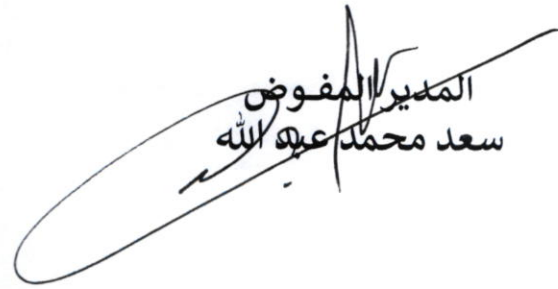 المدير المفوض
سعد محمد عبد الله